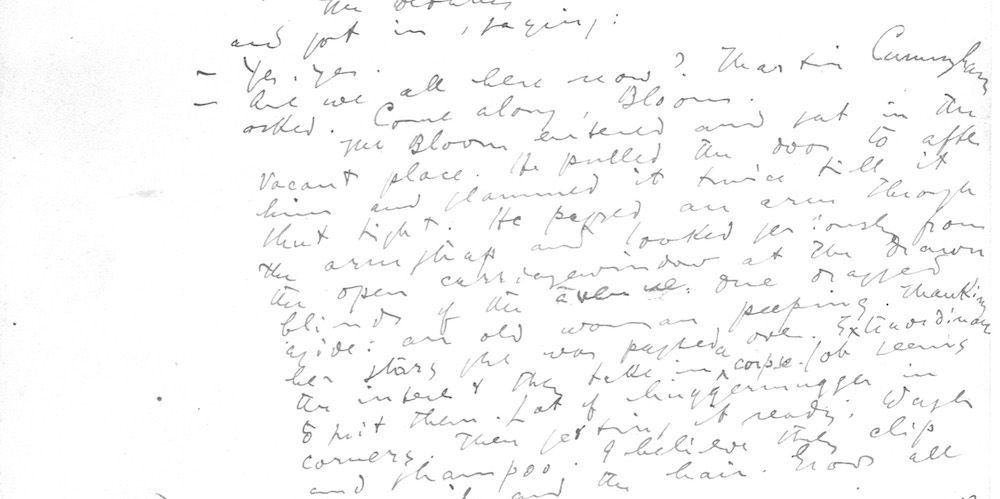 and got in, saying:
— Yes, yes.
— Are we all here now? Martin Cunningham
asked. Come along, Bloom.
Mr Bloom entered and sat in the
vacant place. He pulled the door to after
him and slammed it twice till it
shut tight. He passed an arm through
the armstrap and looked seriously from
the open carriagewindow at the drawn
blinds of the avenue. One dragged
aside: an old woman peeping. Thanking
her stars she was passed over. Extraordinary
the interest they take in a corpse. Job seems
to suit them. Lot of huggermugger in
corners. Then getting it ready. Wash
and shampoo. I believe they clip
and the hair. Grows all